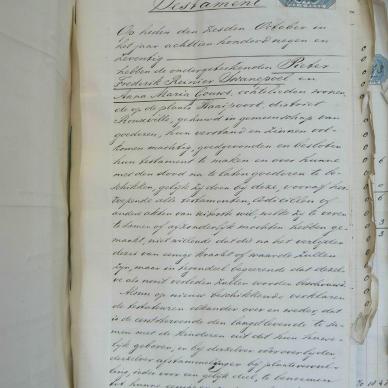 Testament
Op heden den zesden October in
het jaar achttien honderd negen en
zeventig
hebben de ondergeteekenden Pieter
Frederik Reinier Swanepoel en
Anna Maria Louws, echtelieden wonen
de op de plaats Kaaljspoort, district
Rouxville, gehuwd in gemeenschap van
goederen, hun verstand en zinnen vol
komen machtig, goedgevonden en besloten
hun testament te maken en over hunne
met den dood na te laten goederen te be
schikken, gelijk zij doen bij deze, vooraf her
roepende alle testamenten, codicillen of
andere akten van uiterste wil, welke zij te voren
te samen of afzonderlijk mochten hebben ge
maakt, niet willende dat die na het verlijden
dezes van eenige kracht of waarde zullen
zijn, maar in tegendeel begeerende dat dezel
ve als nooit verleden zullen worden beschouwd.
Alsnu op nieuw beschikkende verklaren
de testateuren elkander over en weder, dat
is de eerststervende den langstlevende te za
men met de kinderen uit dit hun huwe
lijk geboren, en bij derzelver vooroverlijden
derzelver afstammelingen bij plaatsvervul
ling, ieder voor een gelijk deel, te benoemen
tot hunne